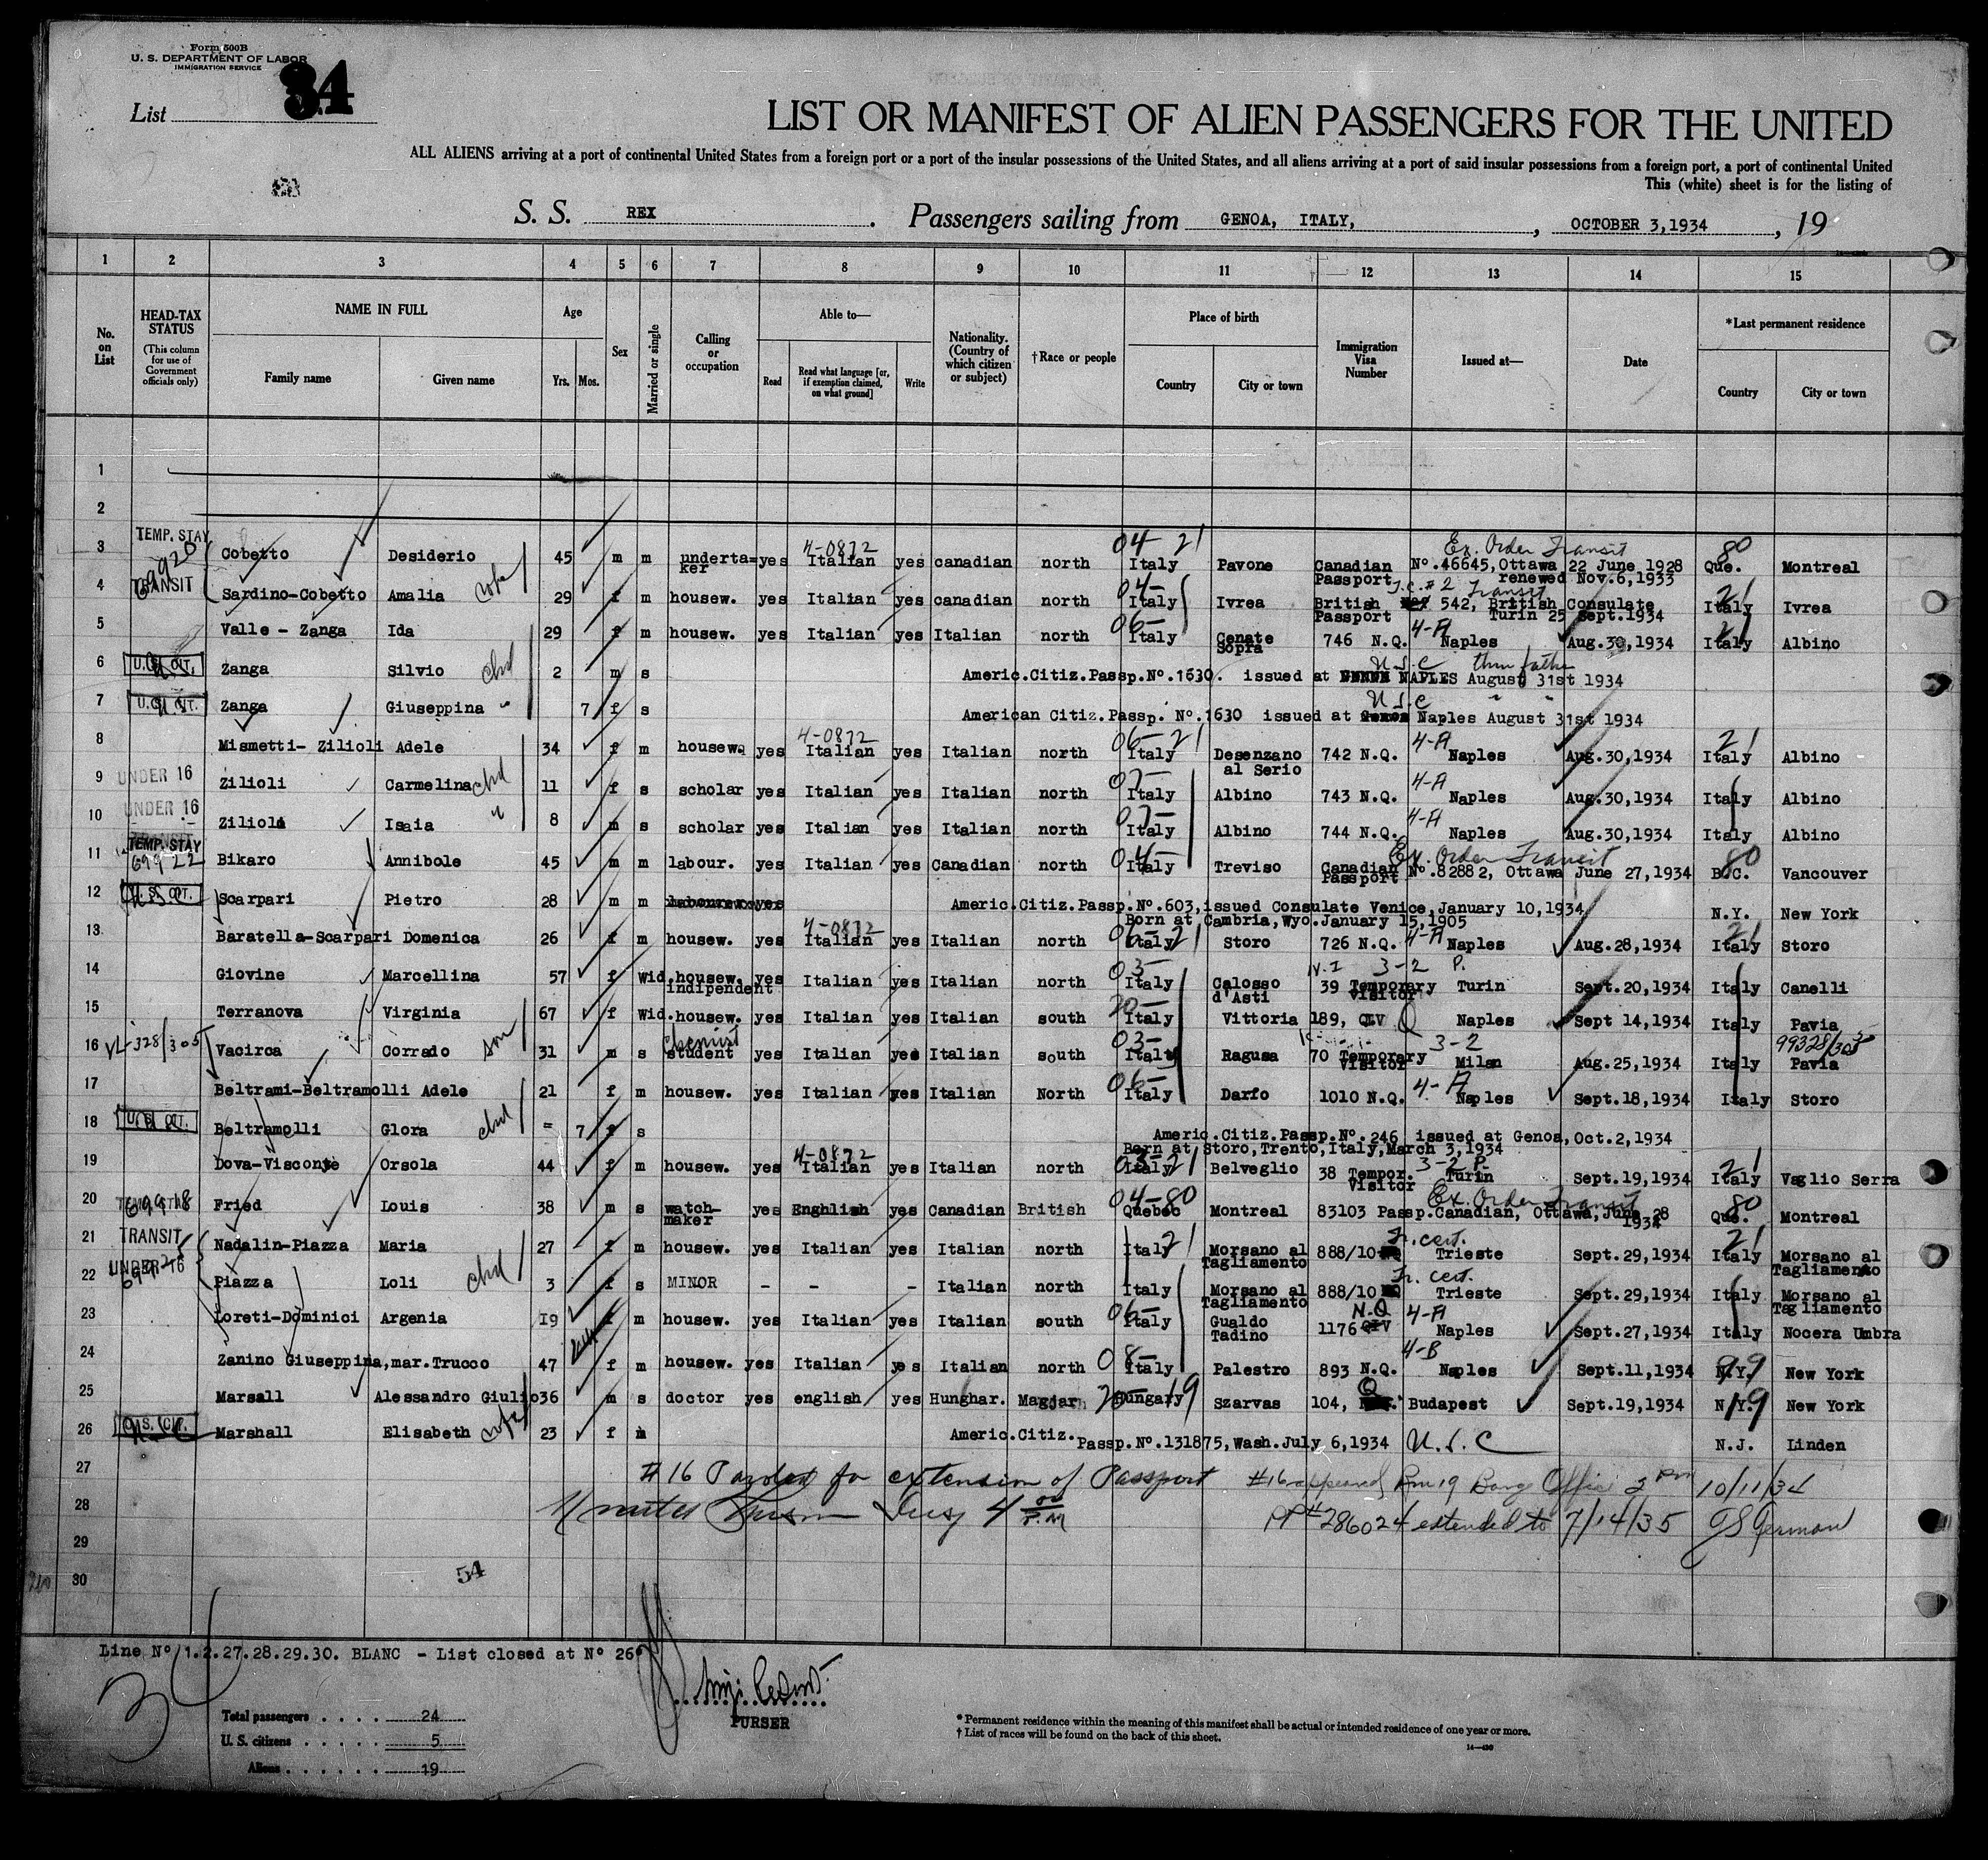 Form 500B
U. S. DEPARTMENT OF LABOR
IMMIGRATION SERVICE
List 34
LIST OR MANIFEST OF ALIEN PASSENGERS FOR THE UNITED
ALL ALIENS arriving at a port of continental United States from a foreign port or a port of the insular possessions of the United States, and all aliens arriving at a port of said insular possessions from a foreign port, a port of continental United
This (white) sheet is for the listing of
S. S. REX . Passengers sailing from GENOA, ITALY, , OCTOBER 3,1934 , 19
1 2 3 4 5 6 7 8 9 10 11 12 13 14 15
No. on List
HEAD-TAX STATUS (This column for use of Government officials only)
NAME IN FULL
Family name Given name
Age Yrs. Mos.
Sex
Married or single
Calling or occupation
Able to— Read Read what language [or, if exemption claimed, on what ground] Write
Nationality. (Country of which citizen or subject)
†Race or people
Place of birth Country City or town
Immigration Visa Number
Issued at—
Date
*Last permanent residence Country City or town
1
2
TEMP. STAY 4-0872 04- 21 Ex. Order Transit 80
3 Cobetto Desiderio 45 m m underta=ker yes Italian yes canadian north Italy Pavone Canadian Passport No.46645,Ottawa 22 June 1928 renewed Nov.6,1933 Que. Montreal
69920 TRANSIT wife 04- T.C.#2 Transit 21
4 Sardino-Cobetto Amalia 29 f m housew. yes Italian yes canadian north Italy Ivrea British Passport 542, British Consulate Turin 25 Sept.1934 Italy Ivrea
06- 4-A 21
5 Valle - Zanga Ida 29 f m housew. yes Italian yes Italian north Italy Cenate Sopra 746 N.Q. Naples Aug.30,1934 Italy Albino
U.S. CIT. chd U.S.C thru father
6 Zanga Silvio 2 m s Americ.Citiz.Passp.No.1630. issued at NAPLES August 31st 1934
U.S. CIT. " U.S.C " "
7 Zanga Giuseppina 7 f s American Citiz.Passp. No.1630 issued at Naples August 31st 1934
4-0872 06-21 4-A 21
8 Mismetti- Zilioli Adele 34 f m housew. yes Italian yes Italian north Italy Desenzano al Serio 742 N.Q. Naples Aug.30,1934 Italy Albino
UNDER 16 chd 07- 4-A
9 Zilioli Carmelina 11 f s scholar yes Italian yes Italian north Italy Albino 743 N.Q. Naples Aug.30,1934 Italy Albino
UNDER 16 " 07- 4-A
10 Zilioli Isaia 8 m s scholar yes Italian yes Italian north Italy Albino 744 N.Q. Naples Aug.30,1934 Italy Albino
TRANSIT TEMP. STAY 69922 04- Ex. Order Transit 80
11 Bikaro Annibole 45 m m labour. yes Italian yes Canadian north Italy Treviso Canadian Passport No.82882, Ottawa June 27,1934 B.C. Vancouver
U.S. CIT.
12 Scarpari Pietro 28 m m yes Americ.Citiz.Passp.No.603,issued Consulate Venice,January 10,1934 N.Y. New York
Born at Cambria, Wyo.January 15,1905
4-0872 06-21 4-A 21
13 Baratella-Scarpari Domenica 26 f m housew. yes Italian yes Italian north Italy Storo 726 N.Q. Naples Aug.28,1934 Italy Storo
03- 3-2 P.
14 Giovine Marcellina 57 f Wid. housew. indipendent yes Italian yes Italian north Italy Calosso d'Asti 39 Temporary Visitor Turin Sept.20,1934 Italy Canelli
20-
15 Terranova Virginia 67 f Wid. housew. yes Italian yes Italian south Italy Vittoria 189, QIV Naples Sept 14,1934 Italy Pavia
VL-328/305 son chemist 03- 3-2 99328/305
16 Vacirca Corrado 31 m s student yes Italian yes Italian south Italy Ragusa 70 Temporary Visitor Milan Aug.25,1934 Italy Pavia
06- 4-A
17 Beltrami-Beltramolli Adele 21 f m housew. yes Italian yes Italian North Italy Darfo 1010 N.Q. Naples Sept.18,1934 Italy Storo
U.S. CIT. chd
18 Beltramolli Glora = 7 f s Americ.Citiz.Passp.No.246 issued at Genoa,Oct.2,1934
Born at Storo,Trento,Italy,March 3,1934
4-0872 03-21 3-2 P. 21
19 Dova-Visconte Orsola 44 f m housew. yes Italian yes Italian north Italy Belveglio 38 Tempor. Visitor Turin Sept.19,1934 Italy Vaglio Serra
69918 04-80 Ex. Order Transit 80
20 Fried Louis 38 m s watch-maker yes Enghlish yes Canadian British Quebec Montreal 83103 Passp.Canadian, Ottawa,June 28 1934 Que. Montreal
TRANSIT 21 Tr. cert. 21
21 Nadalin-Piazza Maria 27 f m housew. yes Italian yes Italian north Italy Morsano al Tagliamento 888/10 Trieste Sept.29,1934 Italy Morsano al Tagliamento
UNDER 16 chd Tr. cert.
22 Piazza Loli 3 f s MINOR - - - Italian north Italy Morsano al Tagliamento 888/10 Trieste Sept.29,1934 Italy Morsano al Tagliamento
06- N.Q 4-A
23 Loreti-Dominici Argenia 19 f m housew. yes Italian yes Italian south Italy Gualdo Tadino 1176 QIV Naples Sept.27,1934 Italy Nocera Umbra
08- 4-B 99
24 Zanino Giuseppina,mar.Trucco 47 f m housew. yes Italian yes Italian north Italy Palestro 893 N.Q. Naples Sept.11,1934 N.Y. New York
20-19 Q 19
25 Marsall Alessandro Giulio 36 m s doctor yes english yes Hunghar. Magjar Hungary Szarvas 104, Budapest Sept.19,1934 N.Y. New York
U.S. CIT. wife
26 Marshall Elisabeth 23 f m Americ.Citiz. Passp.No.131875,Wash.July 6,1934 U.S.C N.J. Linden
27 #16 Paroled for extension of Passport #16 appeared Rm 19 Barge Office 2 PM 10/11/34
28 4 00 P.M PP# 286024 extended to 7/14/35 JS German
29
30
54
Line No 1.2.27.28.29.30. BLANC - List closed at No 26
Total passengers . . . . 24
U. S. citizens . . . . . 5
Aliens . . . . . . 19
PURSER
* Permanent residence within the meaning of this manifest shall be actual or intended residence of one year or more.
† List of races will be found on the back of this sheet.
14—430